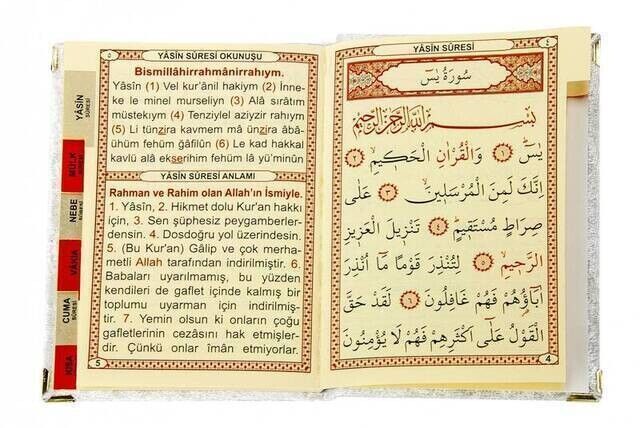 ٥
YÂSÎN SÛRESİ OKUNUŞU
Bismillâhirrahmânirrahıym.
Yâsîn (1) Vel kur'ânil hakiym (2) İnne-
ke le minel murseliyn (3) Alâ sırâtim
müstekıym (4) Tenziylel aziyzir rahıym
(5) Li tünzira kavmem mâ ünzira âbâ-
ühüm fehüm ğâfilûn (6) Le kad hakkal
kavlü alâ ekserihim fehüm lâ yü'minûn
YÂSÎN SÛRESİ ANLAMI
Rahman ve Rahim olan Allah'ın İsmiyle.
1. Yâsîn, 2. Hikmet dolu Kur'an hakkı
için, 3. Sen şüphesiz peygamberler-
densin. 4. Dosdoğru yol üzerindesin.
5. (Bu Kur'an) Gâlip ve çok merha-
metli Allah tarafından indirilmiştir. 6.
Babaları uyarılmamış, bu yüzden
kendileri de gaflet içinde kalmış bir
toplumu uyarman için indirilmiş-
tir. 7. Yemin olsun ki onların çoğu
gafletlerinin cezasını hak etmişler-
dir. Çünkü onlar îmân etmiyorlar.
5
YÂSİN
SÛRESİ
MÜLK
SÛRESİ
NEBE
SÛRESİ
VÂKIA
CUMA
SÛRESİ
KISA
YÂSİN SÛRESİ
٤
سُورَةُ يٰسٓ
بِسْمِ اللّٰهِ الرَّحْمٰنِ الرَّحِيمِ
يٰسٓ ﴿١﴾ وَالْقُرْاٰنِ الْحَكِيمِ ﴿٢﴾
اِنَّكَ لَمِنَ الْمُرْسَلِينَ ﴿٣﴾ عَلٰى
صِرَاطٍ مُسْتَقِيمٍ ﴿٤﴾ تَنْزِيلَ الْعَزِيزِ
الرَّحِيمِ ﴿٥﴾ لِتُنْذِرَ قَوْمًا مَٓا اُنْذِرَ
اٰبَٓاؤُهُمْ فَهُمْ غَافِلُونَ ﴿٦﴾ لَقَدْ حَقَّ
الْقَوْلُ عَلٰٓى اَكْثَرِهِمْ فَهُمْ لَا يُؤْمِنُونَ
4